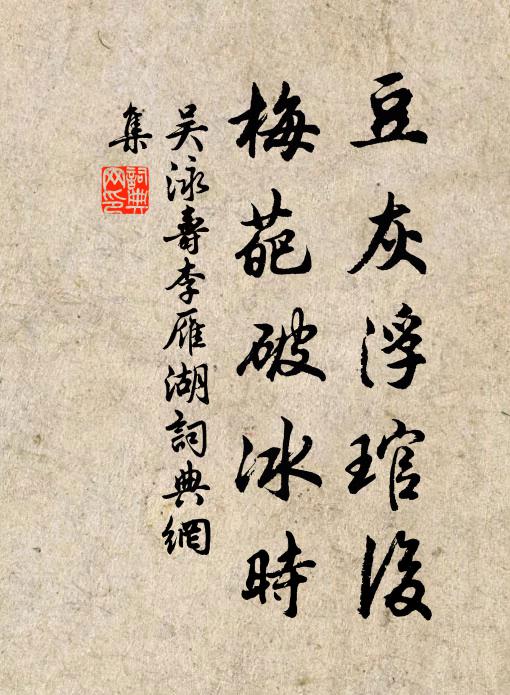 豆灰浮琯後
梅葩破冰時
吴泳壽李雁湖詞典網
集
詞典網印